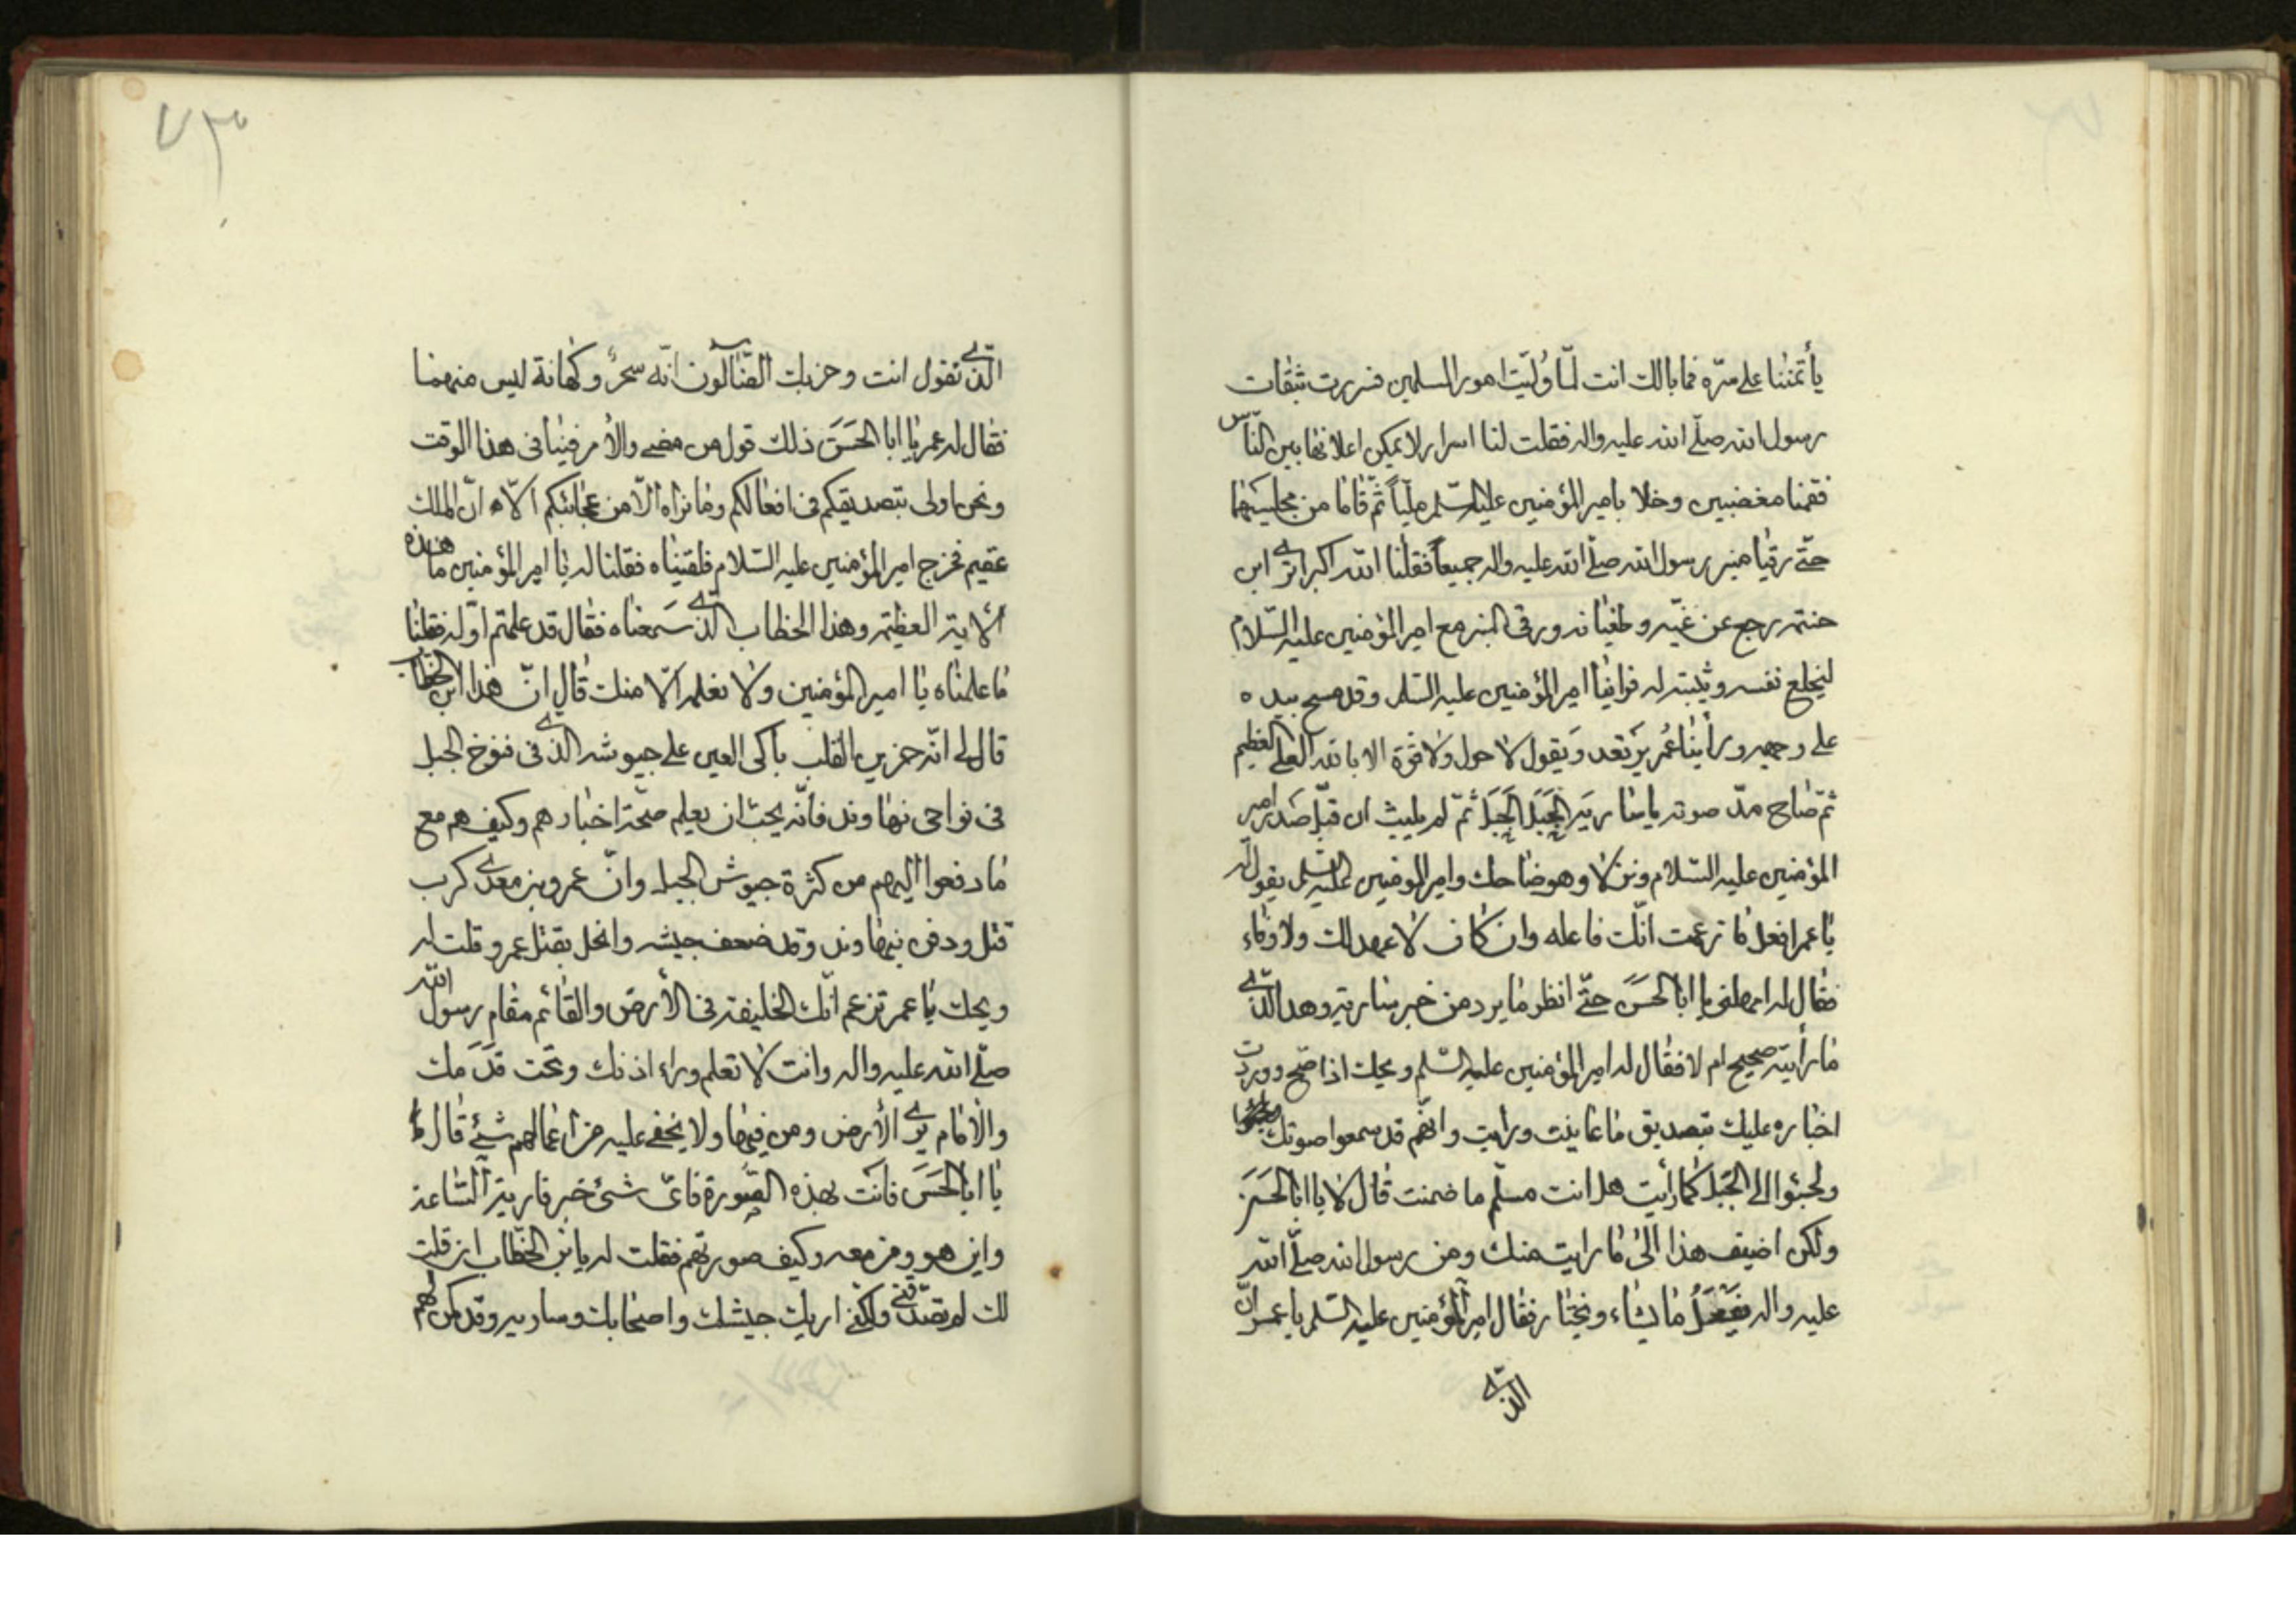 يأتمننا على سرّه فما بالك انت لمّا وُلّيت امور المسلمين فسررت بثقات
رسول الله صلّى الله عليه واله فقلت لنا اسرار لا يمكن اعلانها بين النّاس
فقمنا مغضبين وخلا بامير المؤمنين عليه السّلم مليّاً ثمّ قاما من مجلسيهما
حتّى رقيا منبر رسول الله صلّى الله عليه واله جميعاً فقلنا الله اكبر اترى ابن
حنتمه رجع عن غيّه وطغيانه ورقى المنبر مع امير المؤمنين عليه السّلام
ليخلع نفسه ويثبته له فراينا امير المؤمنين عليه السّلم وقد مسح بيده
على وجهه ورأينا عُمر يرتعد ويقول لا حول ولا قوّة الا بالله العلى العظيم
ثمّ صاح مدّ صوته يا ساريَه الجبَل الجبَل ثمّ لم يلبث ان قبّل صدر امير
المؤمنين عليه السّلام ونزلا وهو ضاحك وامير المؤمنين عليه السّلم يقول له
يا عمر افعل ما زعمت انّك فاعله وان كان لا عهد لك ولا وفاء
فقال له امهلنى يا ابا الحسَن حتّى انظر ما يرد من خبر ساريه وهذا الّذى
ما رأيته صحيح ام لا فقال له امير المؤمنين عليه السّلم ويحك اذا صحّ ووردت
اخباره عليك بتصديق ما عاينت ورايت وانّهم قد سمعوا صوتك
ولجئوا الى الجَبَل كما رأيت هل انت مسلّم ما ضمنت قال لا يا ابا الحسَن
ولكن اضيف هذا الى ما رايت منك ومن رسول الله صلّى الله
عليه واله يفعَلُ ما يشاء ويختار فقال امير المؤمنين عليه السّلم يا عمر انّ
الّذى
٧٣
الّذى تقول انت وحزبك الضّالّون انّه سحرٌ وكهانة ليس منهما
فقال له عمر يا ابا الحسَن ذلك قول من مضى والأمر فينا فى هذا الوقت
ونحن اولى بتصديقكم فى افعالكم وما نراه الّا من عجائبكم الّا انّ الملك
عقيم فخرج امير المؤمنين عليه السّلام فلقيناه فقلنا له يا امير المؤمنين ما هذه
الأية العظيمه وهذا الخطاب الّذى سَمعناه فقال قد علمتم اوّله فقلنا
ما علمناه يا امير المؤمنين ولا نعلمه الّا منك قال انّ هذا ابن الخطّاب
قال لى انّه حزين القلب باكى العين على جيوشه الّذى فى فتوح الجبل
فى نواحى نهاوند فانّه يحبّ ان يعلم صحّة اخبارهم وكيف هم مع
ما دفعوا اليهم من كثرة جيوش الجبل وانّ عمرو بن معدى كرب
قتل ودفن بنهاوند وقد ضعف جيشه وانحل بقتل عمرو قلت له
ويحك يا عمر تزعم انّك الخليفة فى الأرض والقائم مقام رسول الله
صلّى الله عليه واله وانت لا تعلم وراء اذنك وتحت قدَمك
والأمام يرى الأرض ومن فيها ولا يخفى عليه من اعمالهم شيئ قال
يا ابا الحسَن فانت بهذه الصّورة فاىّ شئ خبر ساريه السّاعة
واين هو ومن معه وكيف صورتهم فقلت له يا بن الخطّاب ان قلت
لك لم تصدّقنى ولكنّى اريك جيشك واصحابك وساريه وقد كمن لهم